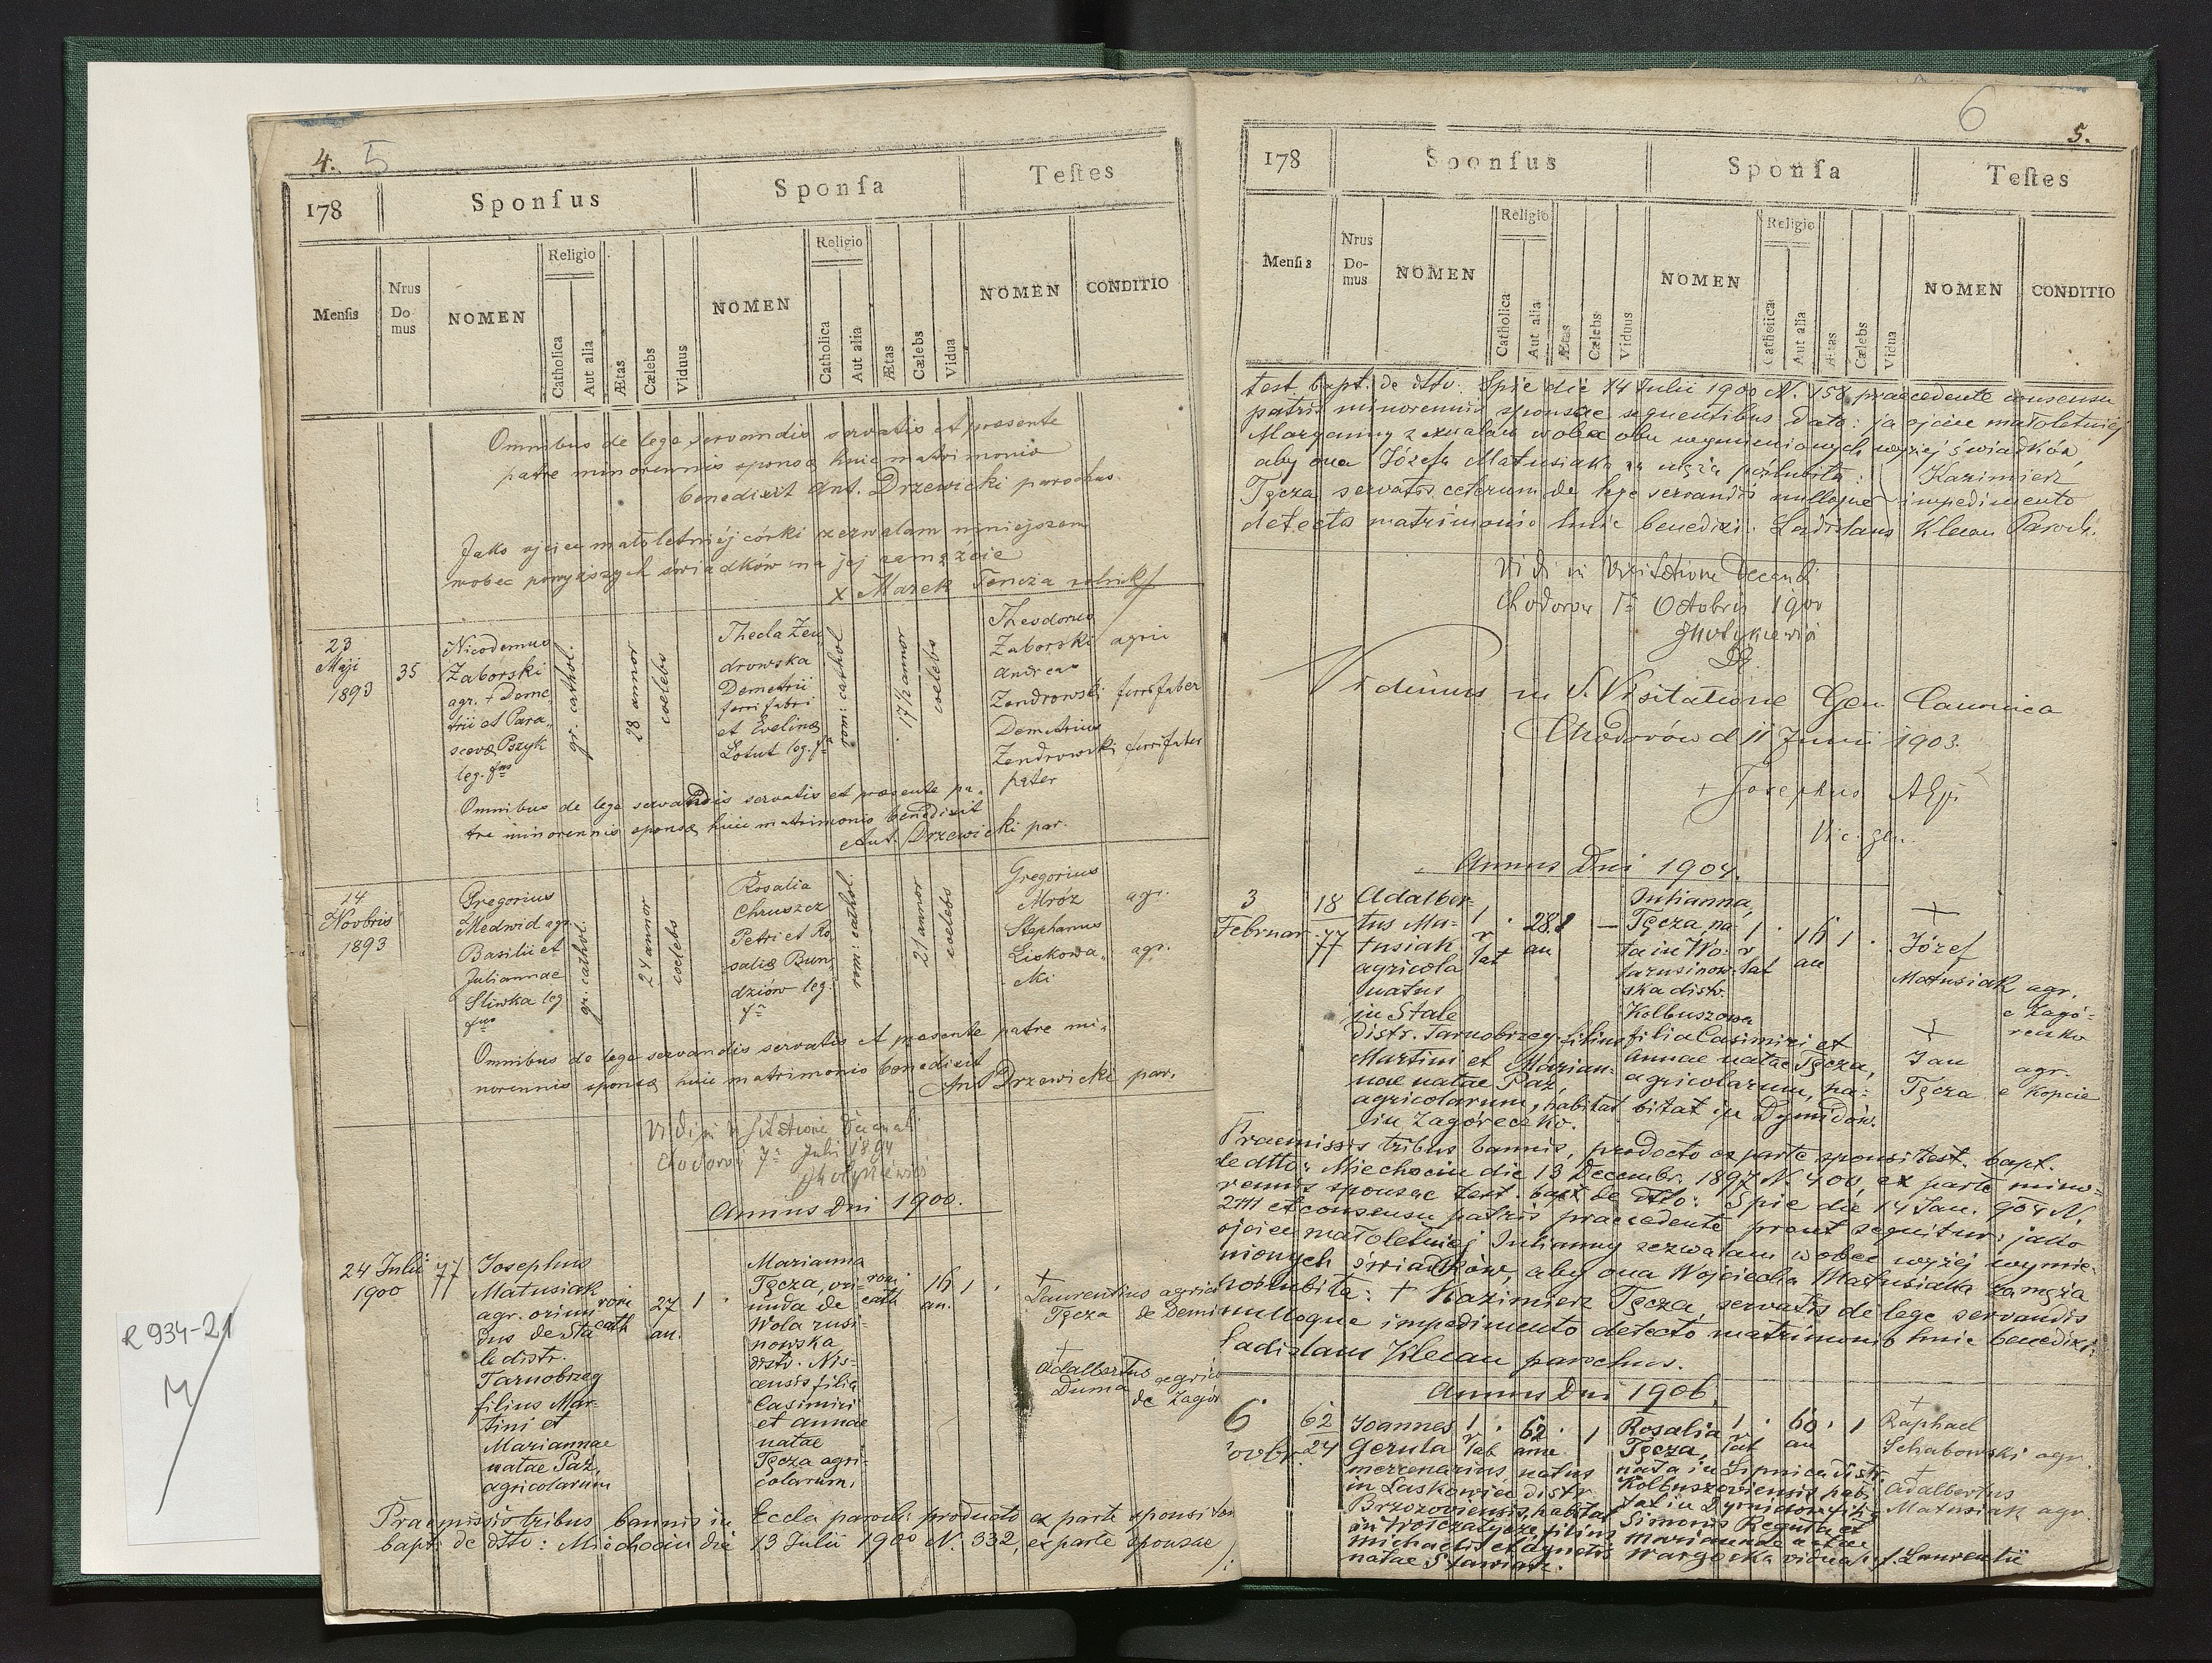 4. 5
178 Sponſus Sponſa Teſtes
Menſis Nrus Do mus NOMEN Religio Catholica Aut alia Ætas Cælebs Viduus NOMEN Religio Catholica Aut alia Ætas Cælebs Vidua NOMEN CONDITIO
Omnibus de lege servandis servatis et presente
patre minorennis sponsę huic matrimonio
benedixit Ant. Drzewicki parochus.
Jako ojciec małoletniéj córki zezwalam niniejszem
wobec powyższych świadków na jej zamęzcie
x Marek Tencza rolnik
23
Maji
1893
35
Nicodemus
Zaborski
agr. + Deme
trii et Para
scevę Pszyk
leg. fus
gr. cathol.
28 annor
coelebs
Thecla Zen
drowska
Demetrii
ferri fabri
et Evelinę
Lotut leg. fa
rom: cathol
17 1/2 annor
coelebs
Theodorus
Zaborski agric
Andreas
Zendrowski ferrifaber
Demetrius
Zendrowski ferrifaber
pater
Omnibus de lege servandis servatis et presente pa-
tre minorennis sponsę huic matrimonio benedixit
Ant. Drzewicki par.
14
Novbris
1893
Gregorius
Medwid agr.
Basilii et
Juliannae
Sliwka leg
fus
gr. cathol.
24 annor
coelebs
Rosalia
Chruszcz
Petri et Ro
salię Bun
dziów leg.
fa
rom: cathol.
21 annor
coelebs
Gregorius
Mróz agr.
Stephanus
Liskowa- agr.
cki
Omnibus de lege servandis servatis et presente patre mi-
norennis sponsę huic matrimonio benedixit
Ant Drzewicki par.
Vidi in visitatione Decanali
Chodorów 7a Julii 1894
Annus Dni 1900.
24 Julii
1900
77
Josephus
Matusiak
agr. oriun
dus de Sta
le distr.
Tarnobrzeg
filius Mar-
tini et
Mariannae
natae Paż,
agricolarum
rom
cath
27
an.
1
Marianna
Tęcza, ori-
unda de
Wola rusi-
nowska
distr. Nis-
censis filia
Casimiri
et Annae
natae
Tęcza agri-
colarum,
rom
cath
16
an.
1
+
Laurentius agrico
Tęcza de Demi
+
Adalbertus agrico
Duma de Zagór
Praemissis tribus bannis in Eccla paroch. producto ex parte sponsi tes
bapt. de dtto: Miechocin die 13 Julii 1900 N. 332, ex parte sponsae
R 934-21
M
6
5.
178 Sponſus Sponſa Teſtes
Menſis Nrus Do- mus NOMEN Religio Catholica Aut alia Ætas Cælebs Viduus NOMEN Religio Catholica Aut alia Ætas Cælebs Vidua NOMEN CONDITIO
test. bapt. de dtto. Spie die 14 Julii 1900 N. 158 praecedente consensu
patris minorennis sponsae sequentibus dato: ja ojciec małoletniéj
Maryanny zezwalam wobec obu wymienionych wyżej świadków,
aby ona Józefa Matusiaka za męża poślubiła: Kazimierz
Tęcza servatis ceterum de lege servandis nulloque impedimento
detecto matrimonio huic benedixi. Ladislaus Klecan Paroch.
Vidi in Visitatione Decanali
Chodorow 1a Octobris 1900
Vidimus in S. Visitatione Gen. Canonica
Chodorów d 11 Junii 1903.
+ Josephus AEpp
Annus Dni 1904.
3
Februar
18
77
Adalber-
tus Ma-
tusiak
agricola
natus
in Stale
distr. Tarnobrzeg filius
Martini et Marian-
nae natae Paż,
agricolarum, habitat
in Zagóreczko.
1
r
lat
28
an
1
Julianna,
Tęcza, na
ta in Wo-
la rusinow
ska distr.
Kolbuszowa
filia Casimiri et
Annae natae Tęcza,
agricolarum, ha-
bitat in Dymidów.
1
r
lat
16
an
1
+
Józef
Matusiak agr.
e Zagó-
reczko
+
Jan agr.
Tęcza e Kopcie
Praemissis tribus bannis, producto ex parte sponsi test. bapt.
de dtto: Miechocin die 13 Decembr. 1897 N. 400, ex parte mino-
rennis sponsae test. bapt de dtto: Spie die 14 Jan. 904 N.
2111 et consensu patris praecedente prout sequitur: jako
ojciec małoletniej Julianny zezwalam wobec wyżéj wymie-
nionych świadków, aby ona Wojciecha Matusiaka za męża
poślubiła: + Kazimierz Tęcza, servatis de lege servandis
nulloque impedimento detecto matrimonio huic benedixi:
Ladislaus Klecan parochus.
Annus Dni 1906.
6
Novbr.
62
24
Joannes
Gerula
mercenarius, natus
in Laskowice distr.
Brzozoviensis, habitat
in Wołczatycze, filius
Michaelis et Agnetis
natae Sławiak.
1
r
lat
62
ann
1
Rosalia
Tęcza,
nata in Lipnica distr.
Kolbuszoviensis habi
tat in Dymidow filia
Simonis Reguła et
Mariannae natae
Wargocka vidua p. f. Laurentii
1
r
lat
60
an
1
+
Raphael
Schabowski agr.
+
Adalbertus
Matusiak agr.